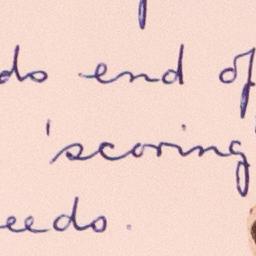 ds end of
'scoring'
eeds.